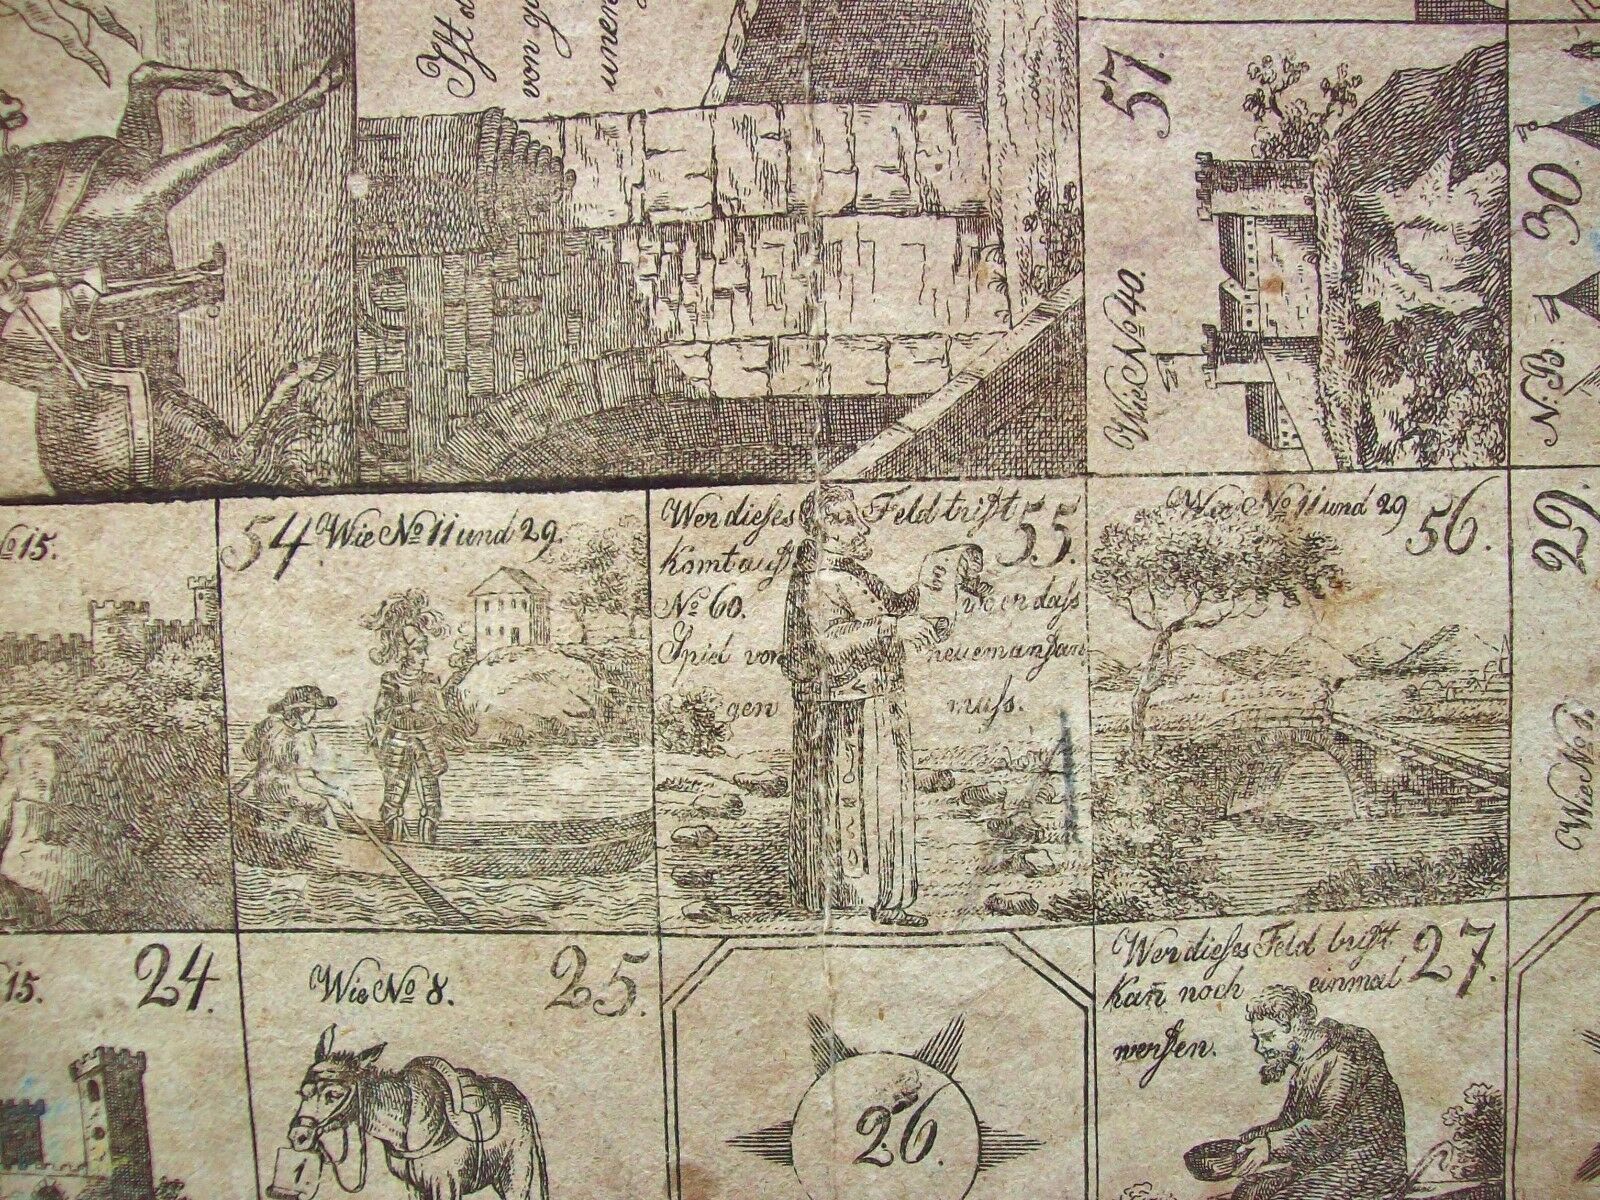 Ist d
von g
unen
57.
Wie No 40.
30.
N.B:
No 15.
54. Wie No 11 und 29.
Wer dieses Feld trift 55.
komt auf
No 60. wer das
Spiel von neuem anfan
gen muss.
1
Wie No 11 und 29 56.
29.
Wie No
15. 24.
Wie No 8. 25.
1
26
Wer dieses Feld trift 27.
kan̄ noch einmal
werfen.